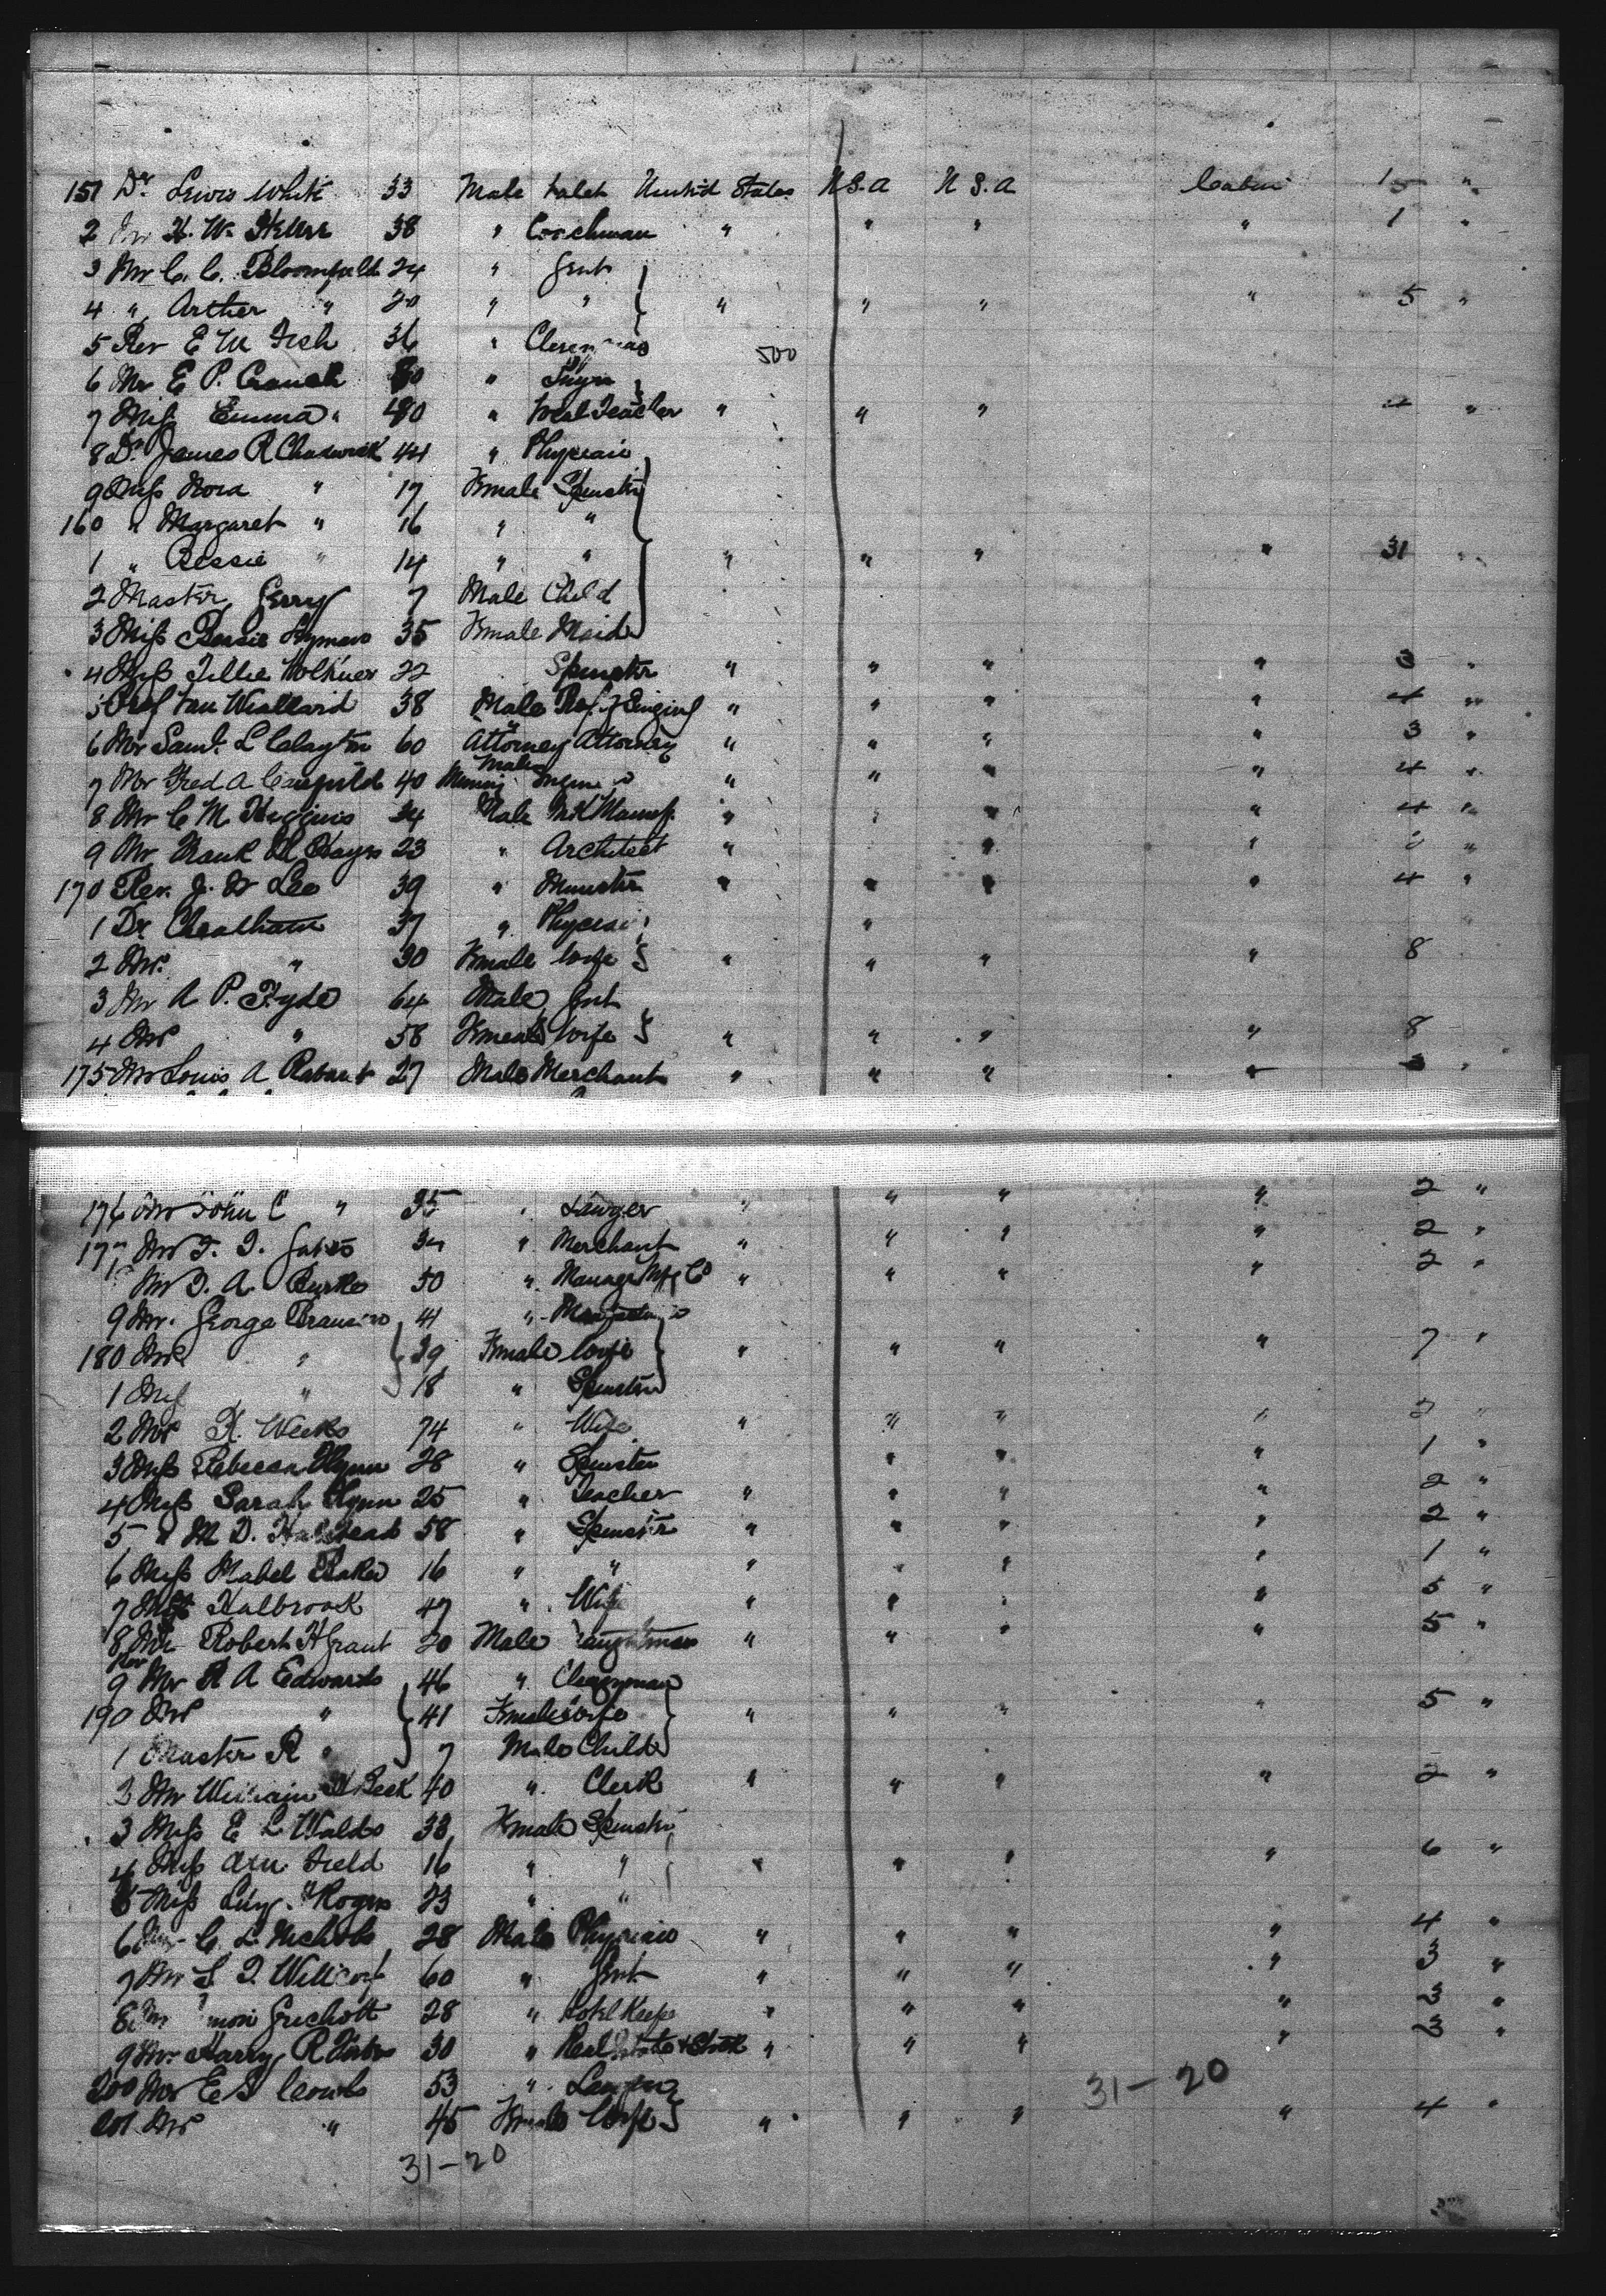 151 Dr Lewis White 33 Male Valet United States U S. A U S. A Cabin 15 "
2 Mr H. W. 38 " Coachman " " " " 1 "
3 Mr C. C. Bloomfield 24 " Gent
4 " Arther " 20 " " " " " " 5 "
5 Rev E M Fish 36 "
500
6 Mr E P. Crouch 80 "
7 Miss Emma " 40 " Teacher " " " "
8 Dr James R Chadwick 44 " Physcian
9 Miss Nora " 17 Female Spinster
160 " Margaret " 16 " "
1 " Bessie " 14 " " " " " " 31 "
2 Master Gerry 7 Male Child
3 Miss Bessie Lyman 35 Female Maid
4 Miss Tillie Volkner 22 Spinster " " " " 3 "
5 Prof Van 38 Male Prof of Singing " " " " 4 "
6 Mr Saml. L Clayton 60 Attorney Attorney " " " " 3 "
Male
7 Mr Fred A 40 Mining " " " " 4 "
8 Mr C M Higgins 34 Male Ink Manuf. " " " 4 "
9 Mr Frank H Hays 23 " Architect " " " "
170 Rev. J. W Lee 39 " Minister " " " " 4 "
1 Dr Cheatham 37 " "
2 Mrs " 30 Female Wife " " " " 8
3 Mr A P. Hyde 64 Male Gent
4 Mrs " 58 Female Wife " " " " 8
175 Mr Louis A Rabaut 27 Male Merchant " " " " 3 "
176 Mr John C " 35 " Lawyer " " " " 2 "
177 Mr T. T. " Merchant " " " " 2 "
Mr T. A. Burke 50 " Manager Mfg Co " " " " 2 "
9 Mr. George 41 "
180 Mrs " 39 Female Wife " " " " 7 "
1 Miss " 18 " Spinster
2 Mrs H. Weeks 74 " Wife " " " " 2 "
3 Miss Rebecca Flynn 28 " Spinster " " " 1 "
4 Miss Sarah Flynn 25 " Teacher " " " " 2 "
5 " M D. Halstead 58 " Spinster " " " " 2 "
6 Miss Mabel Baker 16 " " " " " " 1 "
7 Mrs Halbrook 47 " Wife " " " " 5 "
8 Mr Robert H Grant 20 Male " " " " 5 "
Rev
9 Mr R A Edwards 46 " Clergyman
190 Mrs " 41 Female Wife " " " " 5 "
1 Master R " 7 Male Child
2 Mr William H Beck 40 " Clerk " " " " 2 "
3 Miss E L Waldo 33 Female Spinster
4 Miss Field 16 " " " " " " 6 "
5 Miss Rogers 23 " "
6 C. L Nichols 28 Male Physician " " " " 4 "
7 Mr S. 60 " Gent " " " " 3 "
8 Mr 28 " Hotel Keeper " " " " 3 "
9 Mr Harry R 30 " Real Estate & Stock " " " " 3 "
200 Mr E S 53 " Lawyer
31-20
201 Mrs " 45 Female Wife " " " " 4 "
31-20